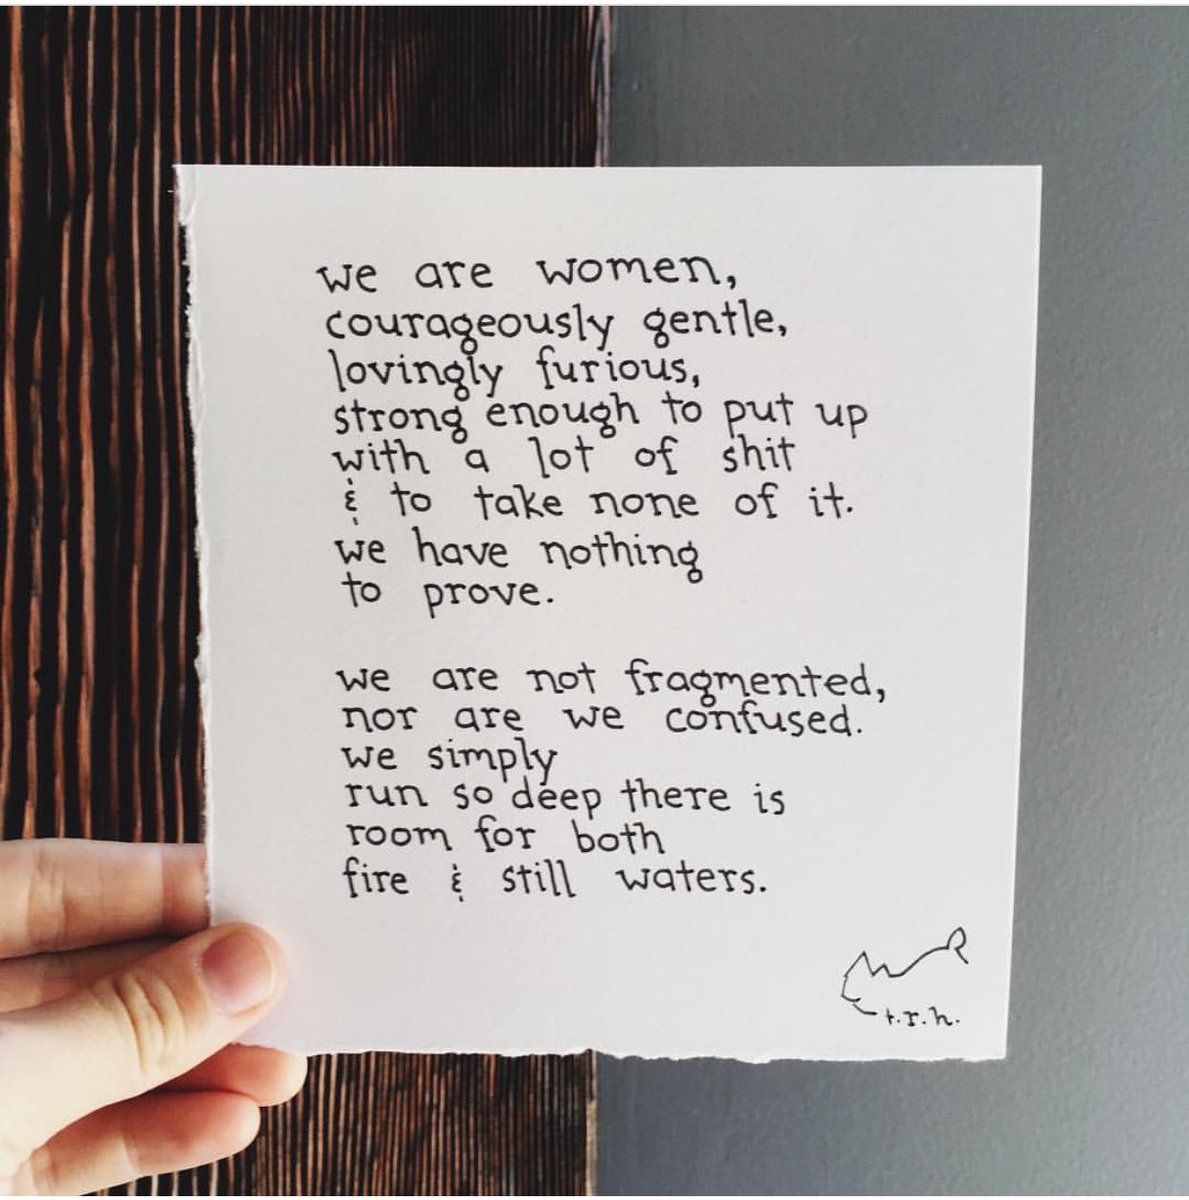 we are women,
courageously gentle,
lovingly furious,
strong enough to put up
with a lot of shit
& to take none of it.
we have nothing
to prove.
we are not fragmented,
nor are we confused.
we simply
run so deep there is
room for both
fire & still waters.
t.r.h.